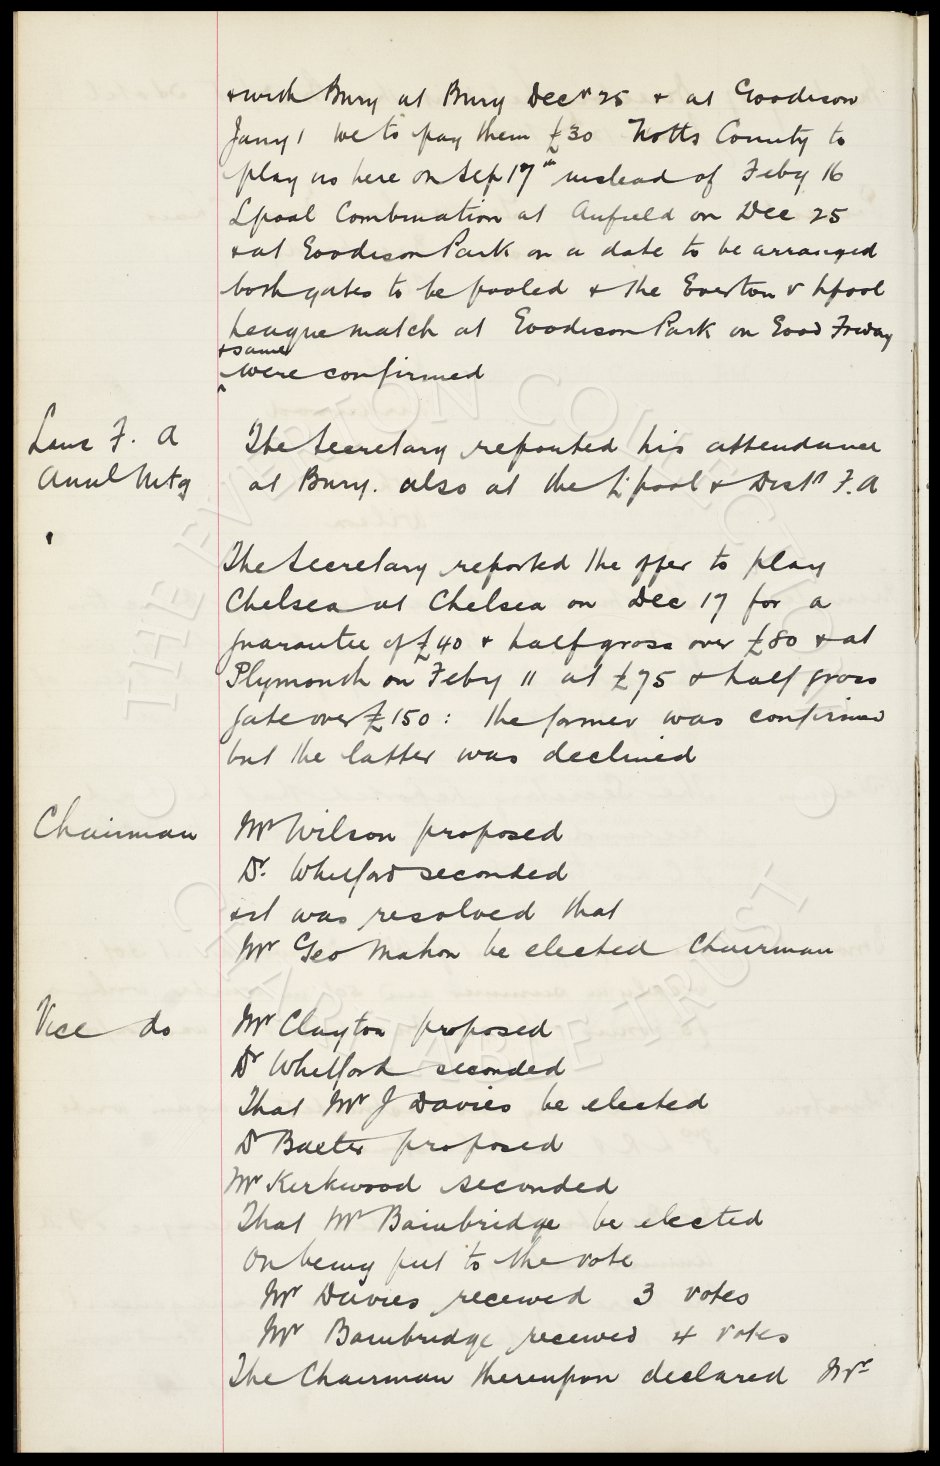 & with Bury at Bury Decr 25 & at Goodison
Jany 1 we to pay them £30 Notts County to
play us here on Sep 17th instead of Feby 16
Lpool Combination at Anfield on Dec 25
& at Goodison Park on a date to be arranged
both gates to be pooled & the Everton v Lpool
League match at Goodison Park on Good Friday
& same
were confirmed
Lanc F. A
Anul Mtg
The Secretary reported his attendance
at Bury. also at the L'pool & Distt F.A
The Secretary reported the offer to play
Chelsea at Chelsea on Dec 17 for a
guarantee of £40 & half gross over £80 & at
Plymouth on Feby 11 at £75 & half gross
gate over £150: the former was confirmed
but the latter was declined
Chairman
Mr Wilson proposed
Dr. Whitford seconded
& it was resolved that
Mr Geo Mahon be elected Chairman
Vice do
Mr Clayton proposed
Dr Whitford seconded
That Mr J Davies be elected
Dr Baxter proposed
Mr Kirkwood seconded
That Mr Bainbridge be elected
On being put to the vote
Mr Davies received 3 votes
Mr Bainbridge received 4 votes
The Chairman thereupon declared Mr
THE EVERTON COLLECTION
CHARITABLE TRUST